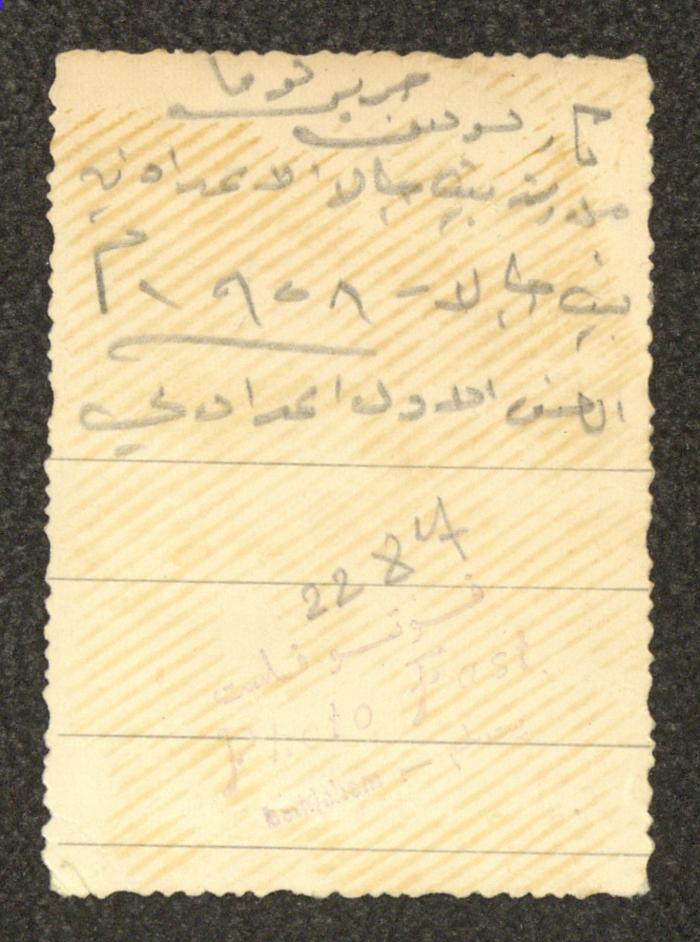 جريس توما
مدرسة بيت جالا الاعدادية
بيت جالا - ١٩٥٨ م
الصف الاول اعدادي
2284
فوتو فاست
Photo Fast.
Bethlehem -